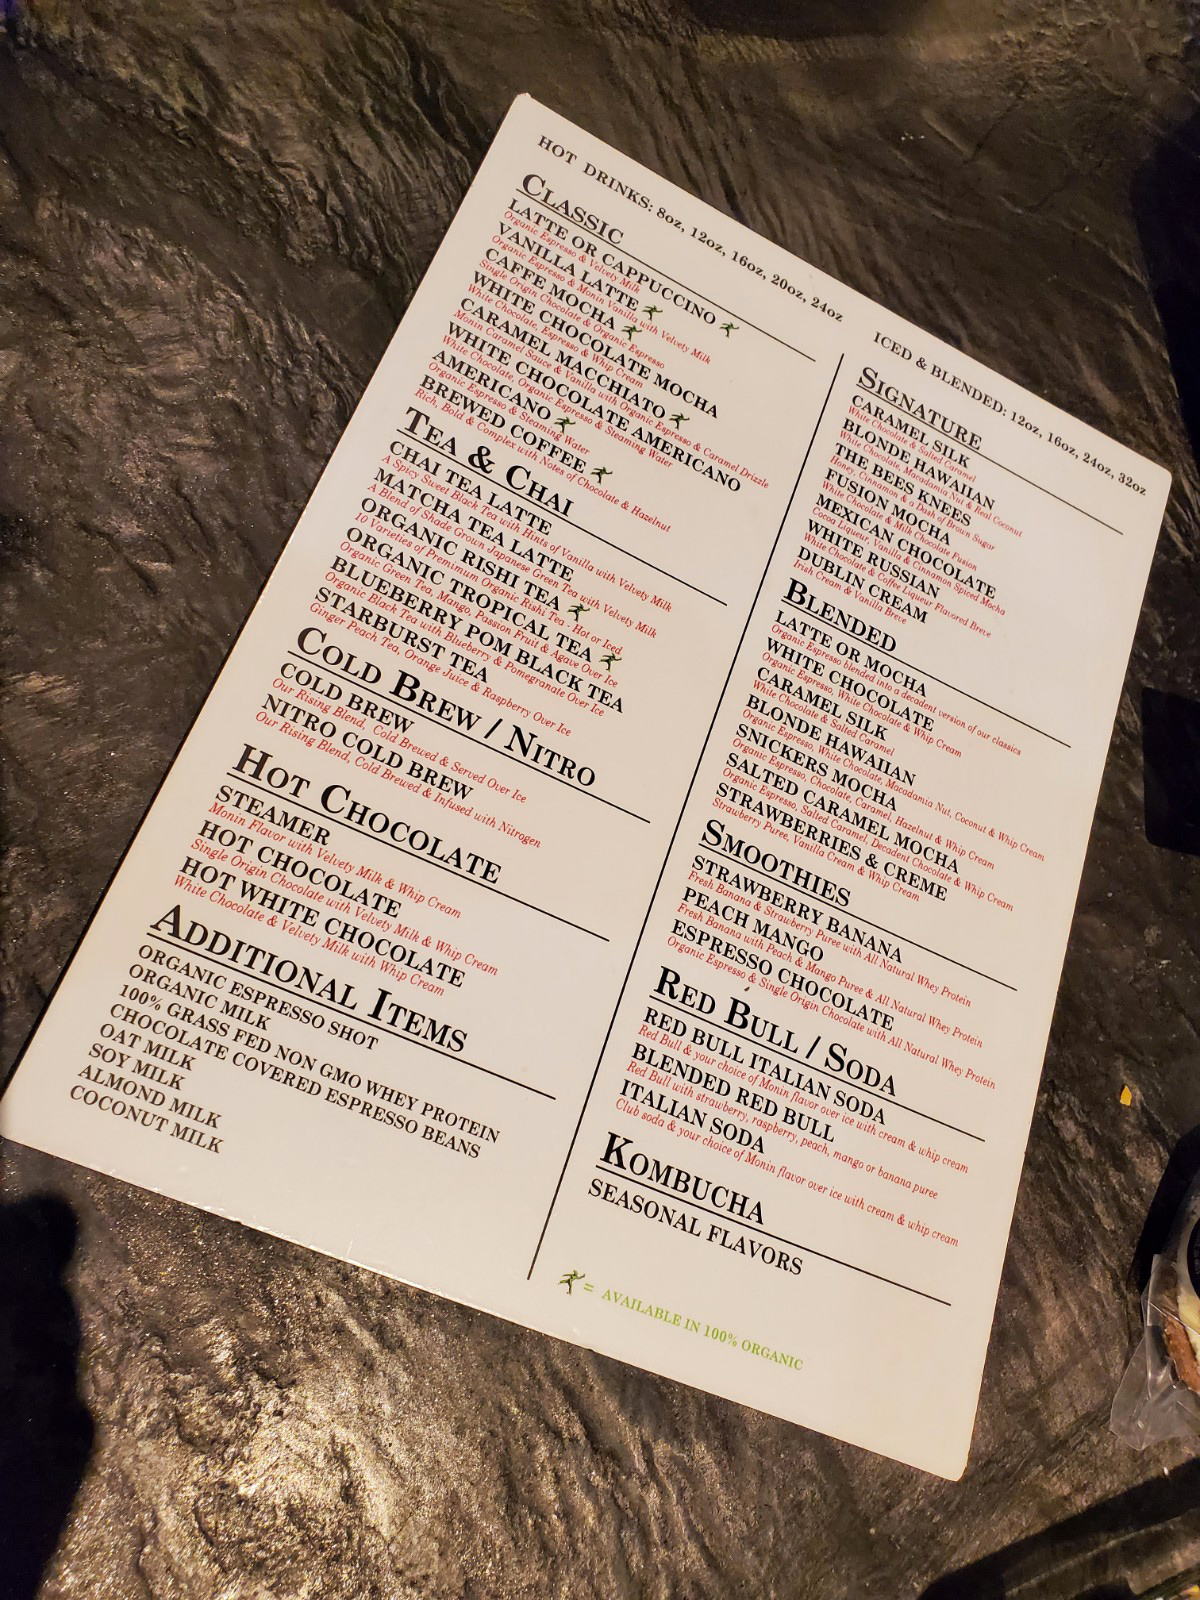 HOT DRINKS: 8oz, 12oz, 16oz, 20oz, 24oz
CLASSIC
LATTE OR CAPPUCCINO
Organic Espresso & Velvety Milk
VANILLA LATTE
Organic Espresso & Monin Vanilla with Velvety Milk
CAFFE MOCHA
Single Origin Chocolate & Organic Espresso
WHITE CHOCOLATE MOCHA
White Chocolate, Espresso & Whip Cream
CARAMEL MACCHIATO
Monin Caramel Sauce & Vanilla with Organic Espresso & Caramel Drizzle
WHITE CHOCOLATE AMERICANO
White Chocolate, Organic Espresso & Steaming Water
AMERICANO
Organic Espresso & Steaming Water
BREWED COFFEE
Rich, Bold & Complex with Notes of Chocolate & Hazelnut
TEA & CHAI
CHAI TEA LATTE
A Spicy Sweet Black Tea with Hints of Vanilla with Velvety Milk
MATCHA TEA LATTE
A Blend of Shade Grown Japanese Green Tea with Velvety Milk
ORGANIC RISHI TEA
10 Varieties of Premimum Organic Rishi Tea - Hot or Iced
ORGANIC TROPICAL TEA
Organic Green Tea, Mango, Passion Fruit & Agave Over Ice
BLUEBERRY POM BLACK TEA
Organic Black Tea with Blueberry & Pomegranate Over Ice
STARBURST TEA
Ginger Peach Tea, Orange Juice & Raspberry Over Ice
COLD BREW / NITRO
COLD BREW
Our Rising Blend, Cold Brewed & Served Over Ice
NITRO COLD BREW
Our Rising Blend, Cold Brewed & Infused with Nitrogen
HOT CHOCOLATE
STEAMER
Monin Flavor with Velvety Milk & Whip Cream
HOT CHOCOLATE
Single Origin Chocolate with Velvety Milk & Whip Cream
HOT WHITE CHOCOLATE
White Chocolate & Velvety Milk with Whip Cream
ADDITIONAL ITEMS
ORGANIC ESPRESSO SHOT
ORGANIC MILK
100% GRASS FED NON GMO WHEY PROTEIN
CHOCOLATE COVERED ESPRESSO BEANS
OAT MILK
SOY MILK
ALMOND MILK
COCONUT MILK
ICED & BLENDED: 12oz, 16oz, 24oz, 32oz
SIGNATURE
CARAMEL SILK
White Chocolate & Salted Caramel
BLONDE HAWAIIAN
White Chocolate, Macadamia Nut & Real Coconut
THE BEES KNEES
Honey, Cinnamon & a Dash of Brown Sugar
FUSION MOCHA
White Chocolate & Milk Chocolate Fusion
MEXICAN CHOCOLATE
Cocoa Liqueur, Vanilla & Cinnamon Spiced Mocha
WHITE RUSSIAN
White Chocolate & Coffee Liqueur Flavored Breve
DUBLIN CREAM
Irish Cream & Vanilla Breve
BLENDED
LATTE OR MOCHA
Organic Espresso blended into a decadent version of our classics
WHITE CHOCOLATE
Organic Espresso, White Chocolate & Whip Cream
CARAMEL SILK
White Chocolate & Salted Caramel
BLONDE HAWAIIAN
Organic Espresso, White Chocolate, Macadamia Nut, Coconut & Whip Cream
SNICKERS MOCHA
Organic Espresso, Chocolate, Caramel, Hazelnut & Whip Cream
SALTED CARAMEL MOCHA
Organic Espresso, Salted Caramel, Decadent Chocolate & Whip Cream
STRAWBERRIES & CREME
Strawberry Puree, Vanilla Cream & Whip Cream
SMOOTHIES
STRAWBERRY BANANA
Fresh Banana & Strawberry Puree with All Natural Whey Protein
PEACH MANGO
Fresh Banana with Peach & Mango Puree & All Natural Whey Protein
ESPRESSO CHOCOLATE
Organic Espresso & Single Origin Chocolate with All Natural Whey Protein
RED BULL / SODA
RED BULL ITALIAN SODA
Red Bull & your choice of Monin flavor over ice with cream & whip cream
BLENDED RED BULL
Red Bull with strawberry, raspberry, peach, mango or banana puree
ITALIAN SODA
Club soda & your choice of Monin flavor over ice with cream & whip cream
KOMBUCHA
SEASONAL FLAVORS
= AVAILABLE IN 100% ORGANIC